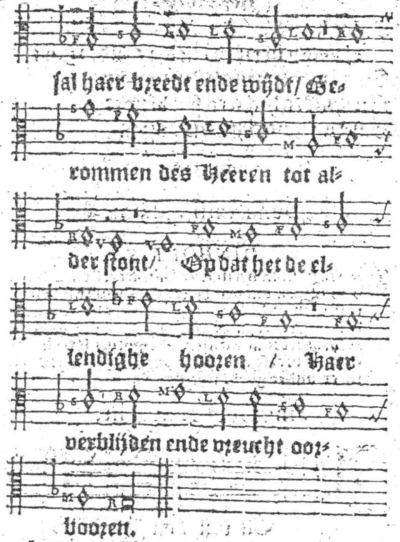 sal haer breedt ende wijdt/ Ge-
rommen des Heeren tot al-
der stont/ Op dat het de el-
lendighe hooren / Haer
verblijden ende vreucht oor-
booren.